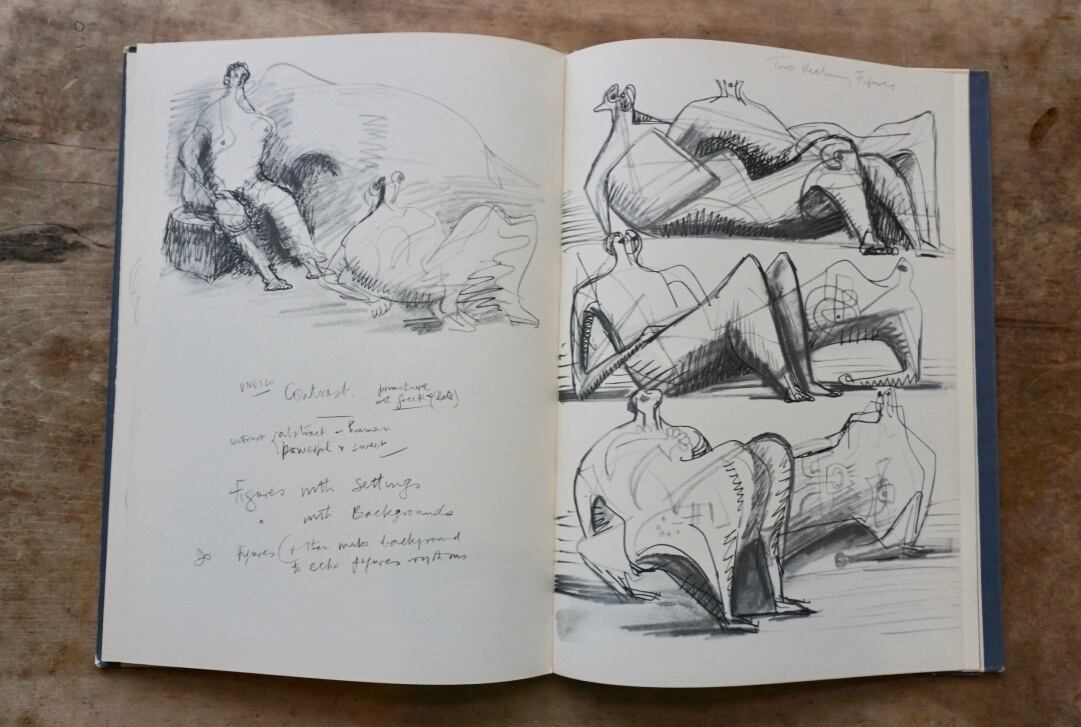 UNESCO Contrast. primitive
with Greek (late)
contrast {abstract + human
powerful + sweet
Figures with settings
" with Backgrounds
Do Figures (& then make background
to echo figures rhythms
Two Reclining Figures